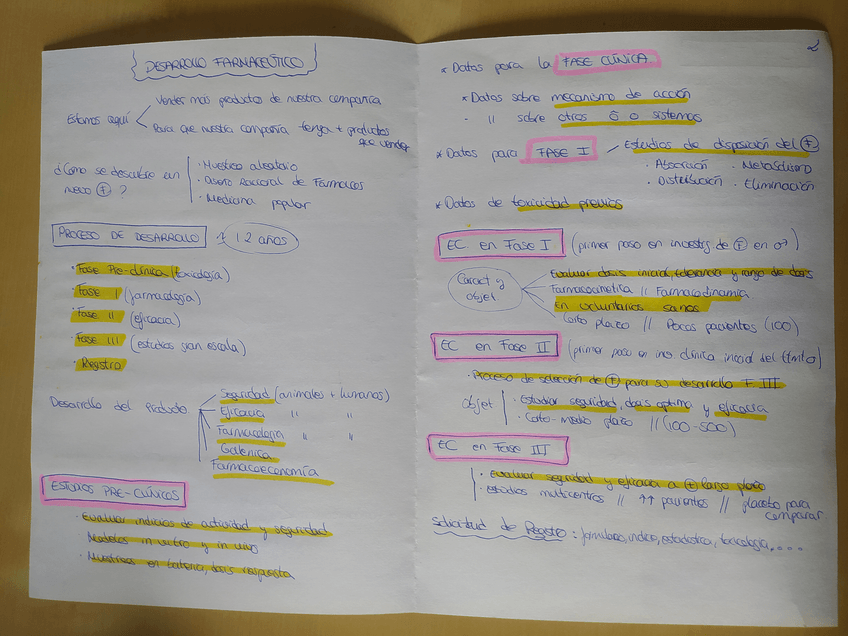 DESARROLLO FARMACEÚTICO
Estamos aquí
Vender más productos de nuestra compañía
Para que nuestra compañía tenga + productos
que vender
¿Cómo se descubre un
nuevo Ⓕ?
· Muestreo aleatorio
· Diseño Racional de Fármacos
· Medicina popular
PROCESO DE DESARROLLO 12 años
· Fase Pre-clínica (toxicología)
· Fase I (farmacología)
· Fase II (eficacia)
· Fase III (estudios gran escala)
· Registro
Desarrollo del Producto
Seguridad (animales + humanos)
Eficacia " "
Farmacología " "
Galénica
Farmacoeconomía
ESTUDIOS PRE-CLÍNICOS
· Evaluar indicios de actividad y seguridad
· Modelos in vitro y in vivo
· Muestreos en batería, dosis respuesta
2
* Datos para la FASE CLÍNICA
* Datos sobre mecanismo de acción
· " sobre otros o sistemas
* Datos para FASE I
Estudios de disposición del Ⓕ
· Absorción · Metabolismo
· Distribución · Eliminación
* Datos de toxicidad previos
EC en Fase I (primer paso en investig de Ⓕ en
Caract y
objet
Evaluar dosis inicial, tolerancia y rango de dosis
Farmacocinética // Farmacodinamia
En voluntarios sanos
Corto plazo // Pocos pacientes (100)
EC en Fase II (primer paso en inv. clínica inicial del ttmto)
· Proceso de selección de Ⓕ para su desarrollo F III
Objet
· Estudiar seguridad, dosis óptima y eficacia
· Corto-medio plazo // (100-500)
EC en Fase III
· Evaluar seguridad y eficacia a Ⓕ largo plazo
· Estudios multicentros // ↑↑ pacientes // placebo para
comparar
Solicitud de Registro : formulario, índice, estadística, toxicología, ....